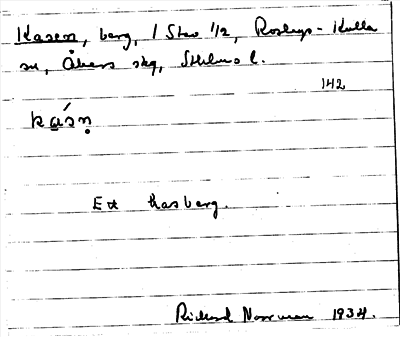 Kasen, berg, 1 Stav 1/2, Roslags-Kulla
sn, Åkers skg, Sthlms l.
142
kásn̥
Ett kasberg.
Rickard Norrman 1934.